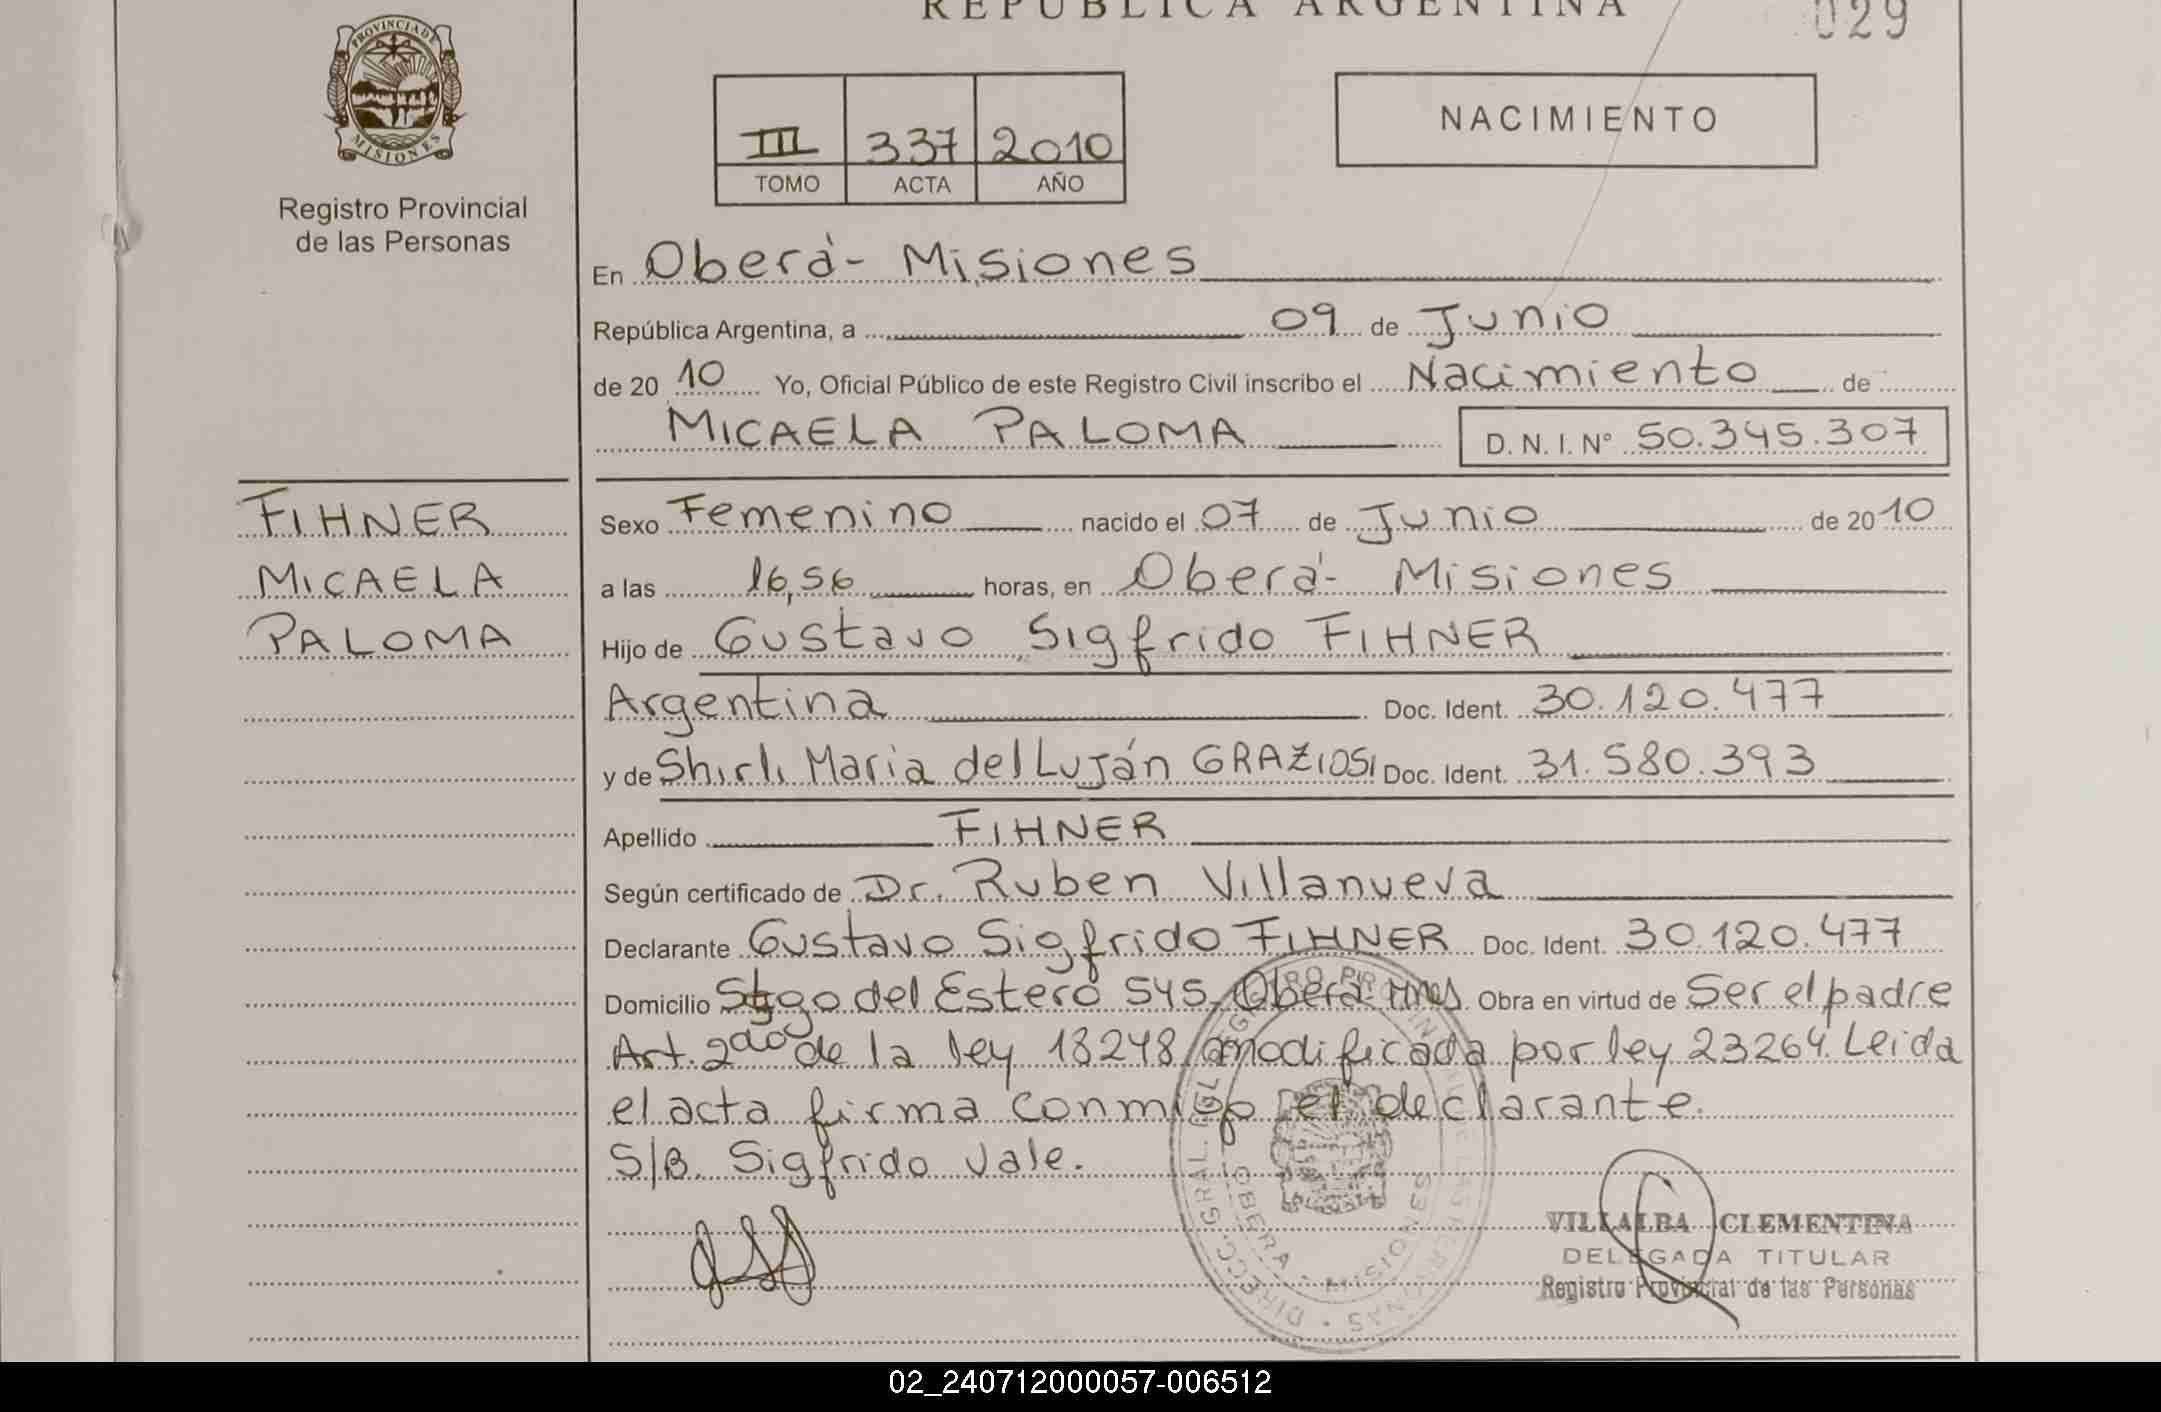 REPUBLICA ARGENTINA
029
PROVINCIA DE
MISIONES
Registro Provincial
de las Personas
III 337 2010
TOMO ACTA AÑO
NACIMIENTO
En Oberá - Misiones
República Argentina, a 09 de Junio
de 2010 Yo, Oficial Público de este Registro Civil inscribo el Nacimiento de
MICAELA PALOMA D. N. I. Nº 50.345.307
FIHNER
MICAELA
PALOMA
Sexo Femenino nacido el 07 de Junio de 2010
a las 16,56 horas, en Oberá - Misiones
Hijo de Gustavo Sigfrido FIHNER
Argentina Doc. Ident. 30.120.477
y de Shirli Maria del Luján GRAZIOSI Doc. Ident. 31.580.393
Apellido FIHNER
Según certificado de Dr. Ruben Villanueva
Declarante Gustavo Sigfrido FIHNER Doc. Ident. 30.120.477
Domicilio Stgo del Estero 545 - Oberá - Mnes Obra en virtud de Ser el padre
Art. 2do de la ley 18248 modificada por ley 23264. Leida
el acta firma conmigo el declarante.
S/B. Sigfrido Vale.
OBERA - MISIONES
VILLALBA CLEMENTINA
DELEGADA TITULAR
Registro Provincial de las Personas
02_240712000057-006512